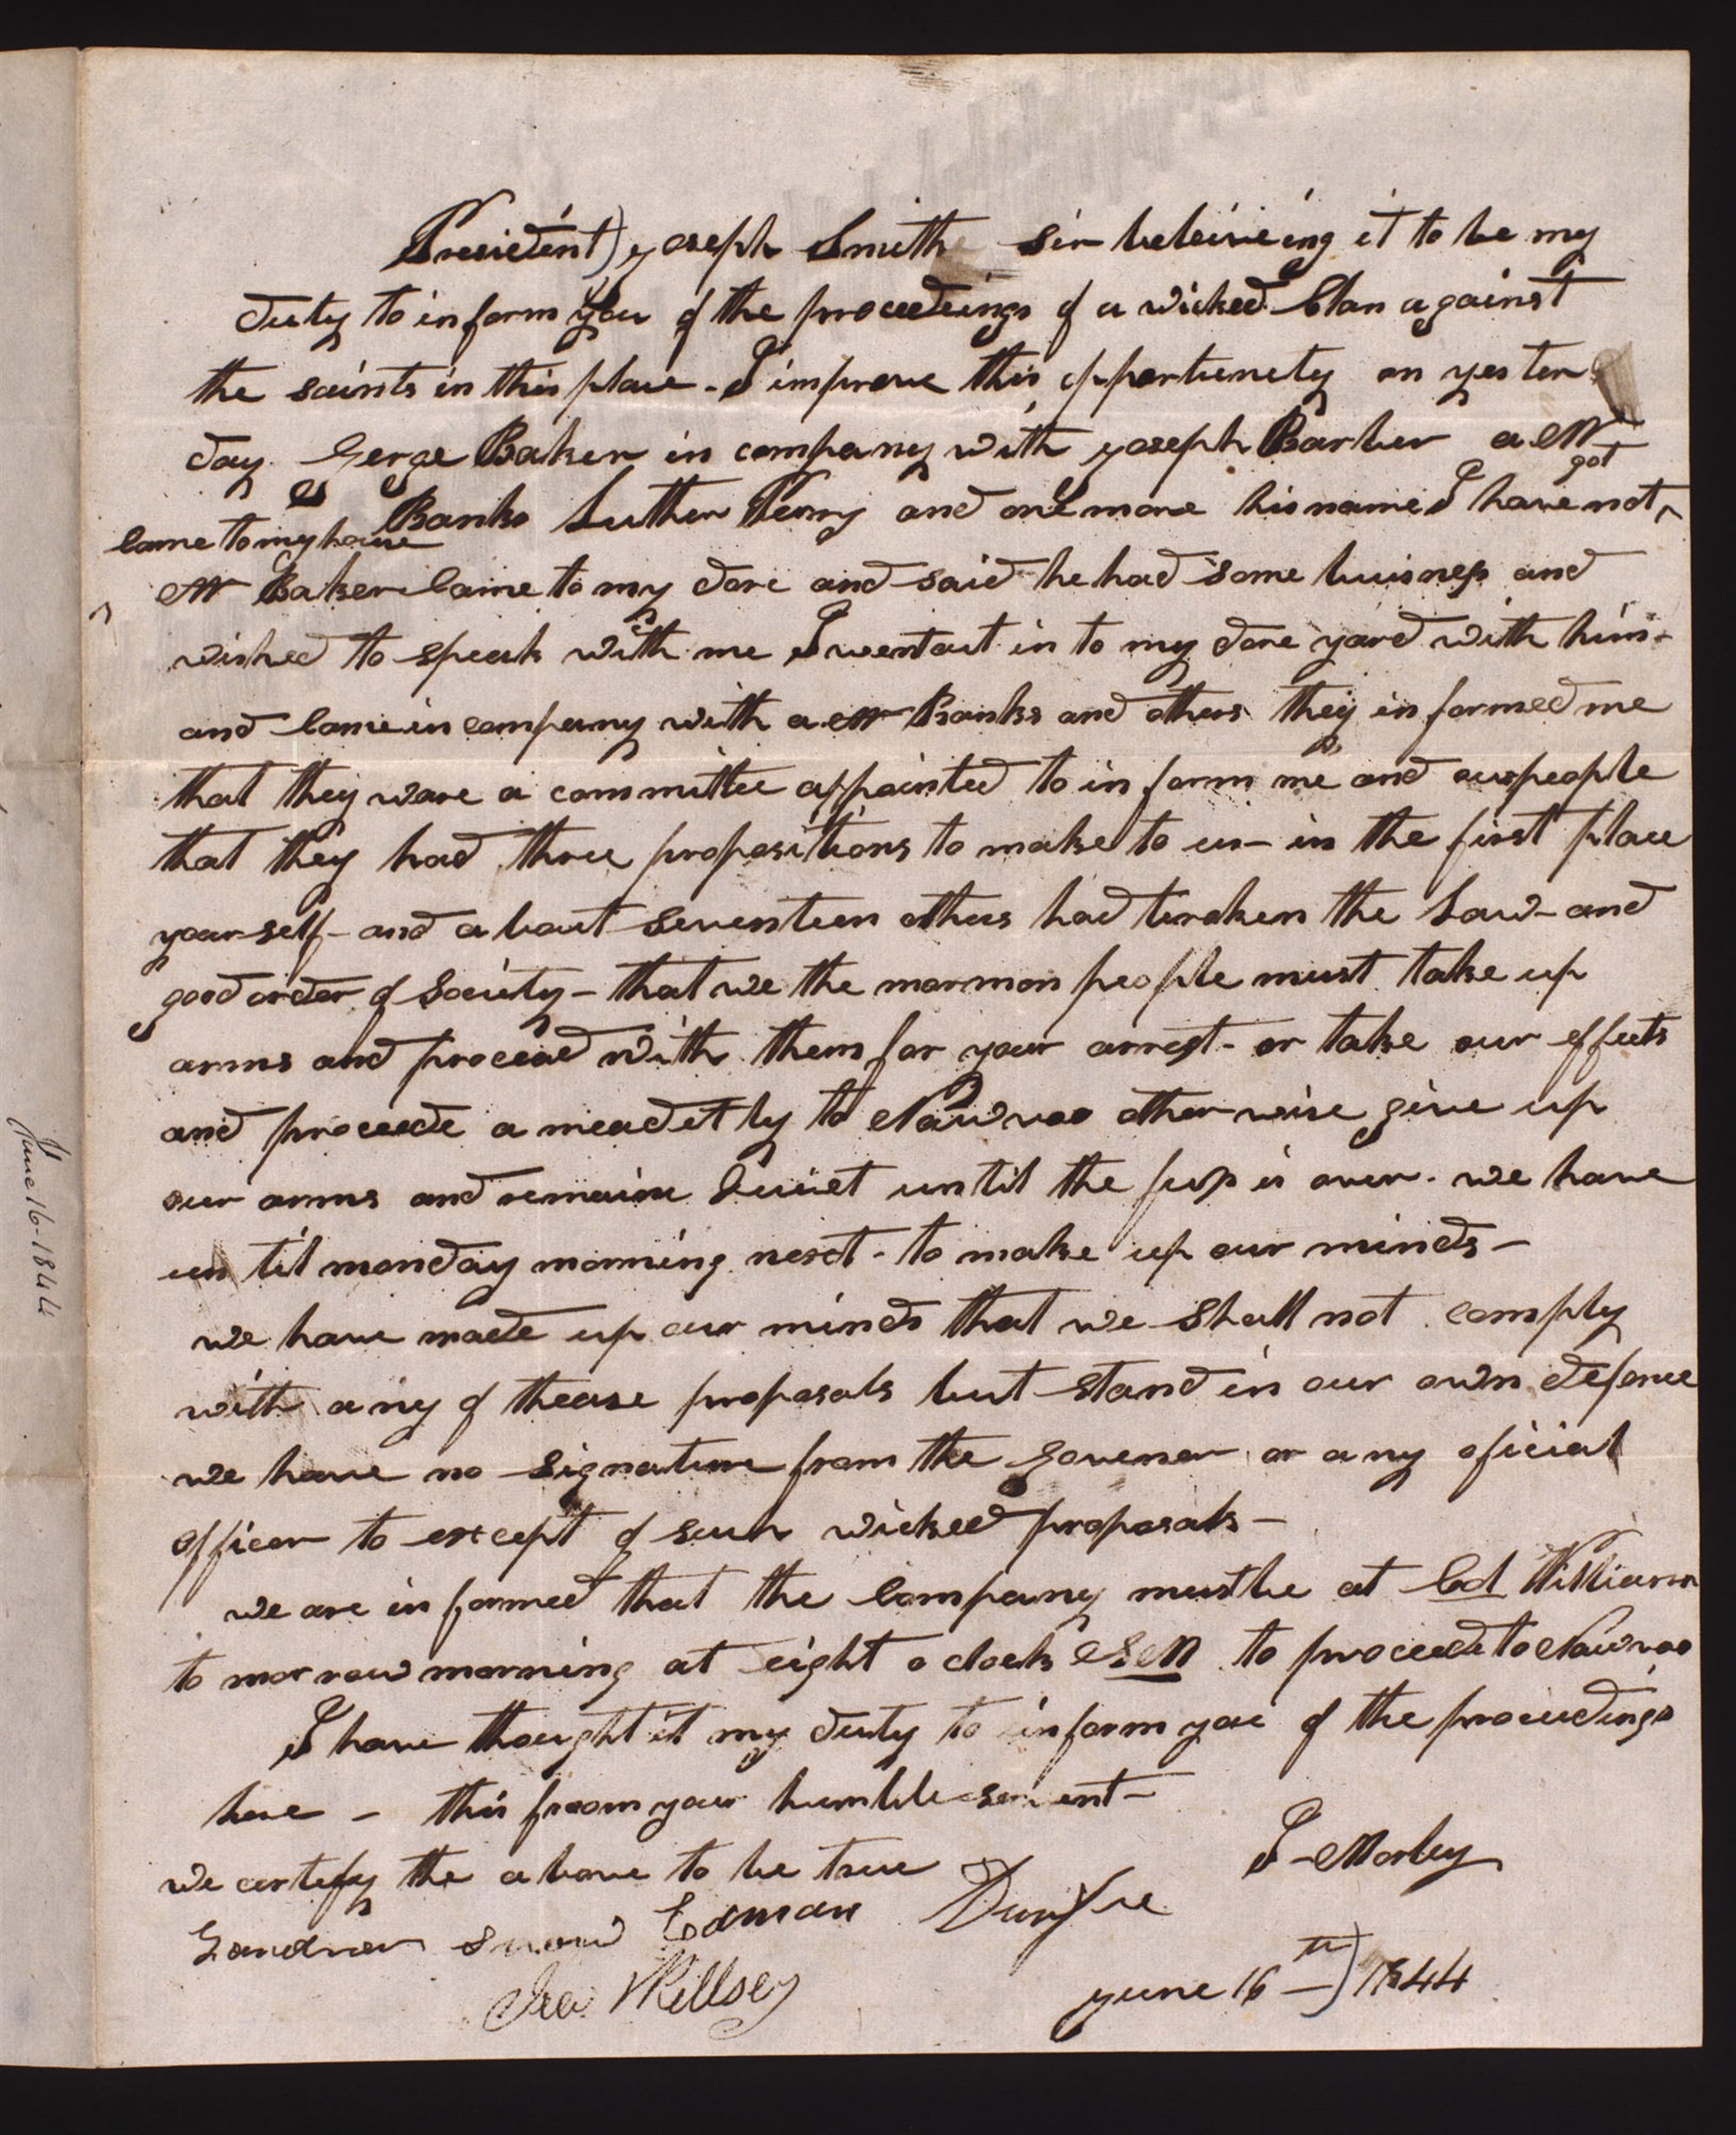 President) yoseph Smith sir beleiveing it to be my
duty to inform you of the proceedings of a wicked Clan against
the saints in this place - I improve this opportunety on yester
day Gorge Baker in company with yoseph Barber a Mr
Banks Luther Perry and one more his name I have not ^ got
came to my house
Mr Baker Came to my dore and said he had some buisness and
wished to speak with me I went out in to my dore yard with him -
and Came in company with a Mr Banks and others they informed me
that they ware a committee appointed to in form me and our people
that they had three propositions to make to us - in the first place
your self - and a bout seventeen others had broken the Law - and
good order of Society - that we the mormon people must take up
arms and proceed with them for your arrest - or take our effects
and proceede a meadetly to Nawvoo other wise give up
our arms and remaine Quiet until the fuss is over - we have
un til monday morning next - to make up our minds -
we have made up our minds that we shall not comply
with any of thease proposals but stand in our own defence
we have no signature from the govenor or any oficial
officer to except of such wicked proposals -
we are in formed that the Company must be at Col Williams
to morrow morning at eight o clock to proceede to Nawvoo
I have thought it my duty to inform you of the proceedings
here - this from your humble servent -
I - Morley
we certefy the above to be true
Gardner Snow Edman Durfee
Ira Willsey
yune 16th) 1844
June 16 - 1844